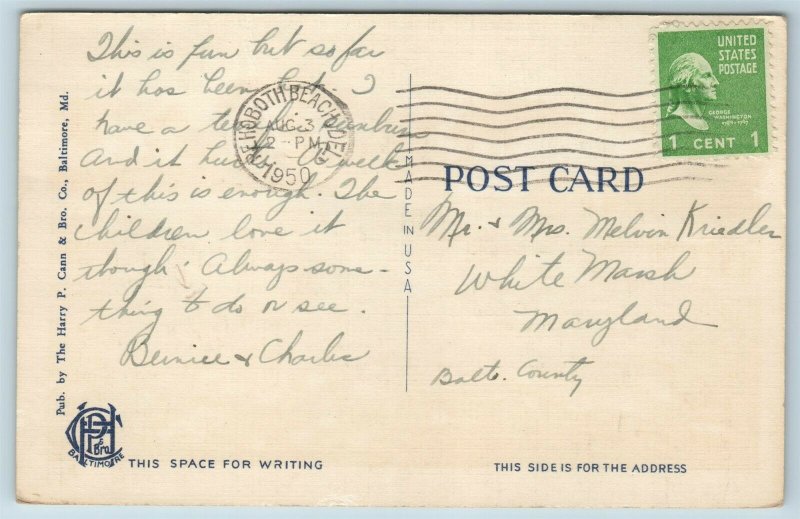 This is fun but so far
it has been hot. I
have a terrible sunburn
and it hurts. A week
of this is enough. The
children love it
though. Always some-
thing to do or see.
Bernice & Charles
REHOBOTH BEACH, DEL.
AUG 3
2 - PM
1950
UNITED
STATES
POSTAGE
GEORGE
WASHINGTON
1789-1797
1 CENT 1
MADE IN USA
POST CARD
Mr. & Mrs. Melvin Kriedler
White Marsh
Maryland
Balto. County
Pub. by The Harry P. Cann & Bro. Co., Baltimore, Md.
& Bro
BALTIMORE
THIS SPACE FOR WRITING
THIS SIDE IS FOR THE ADDRESS